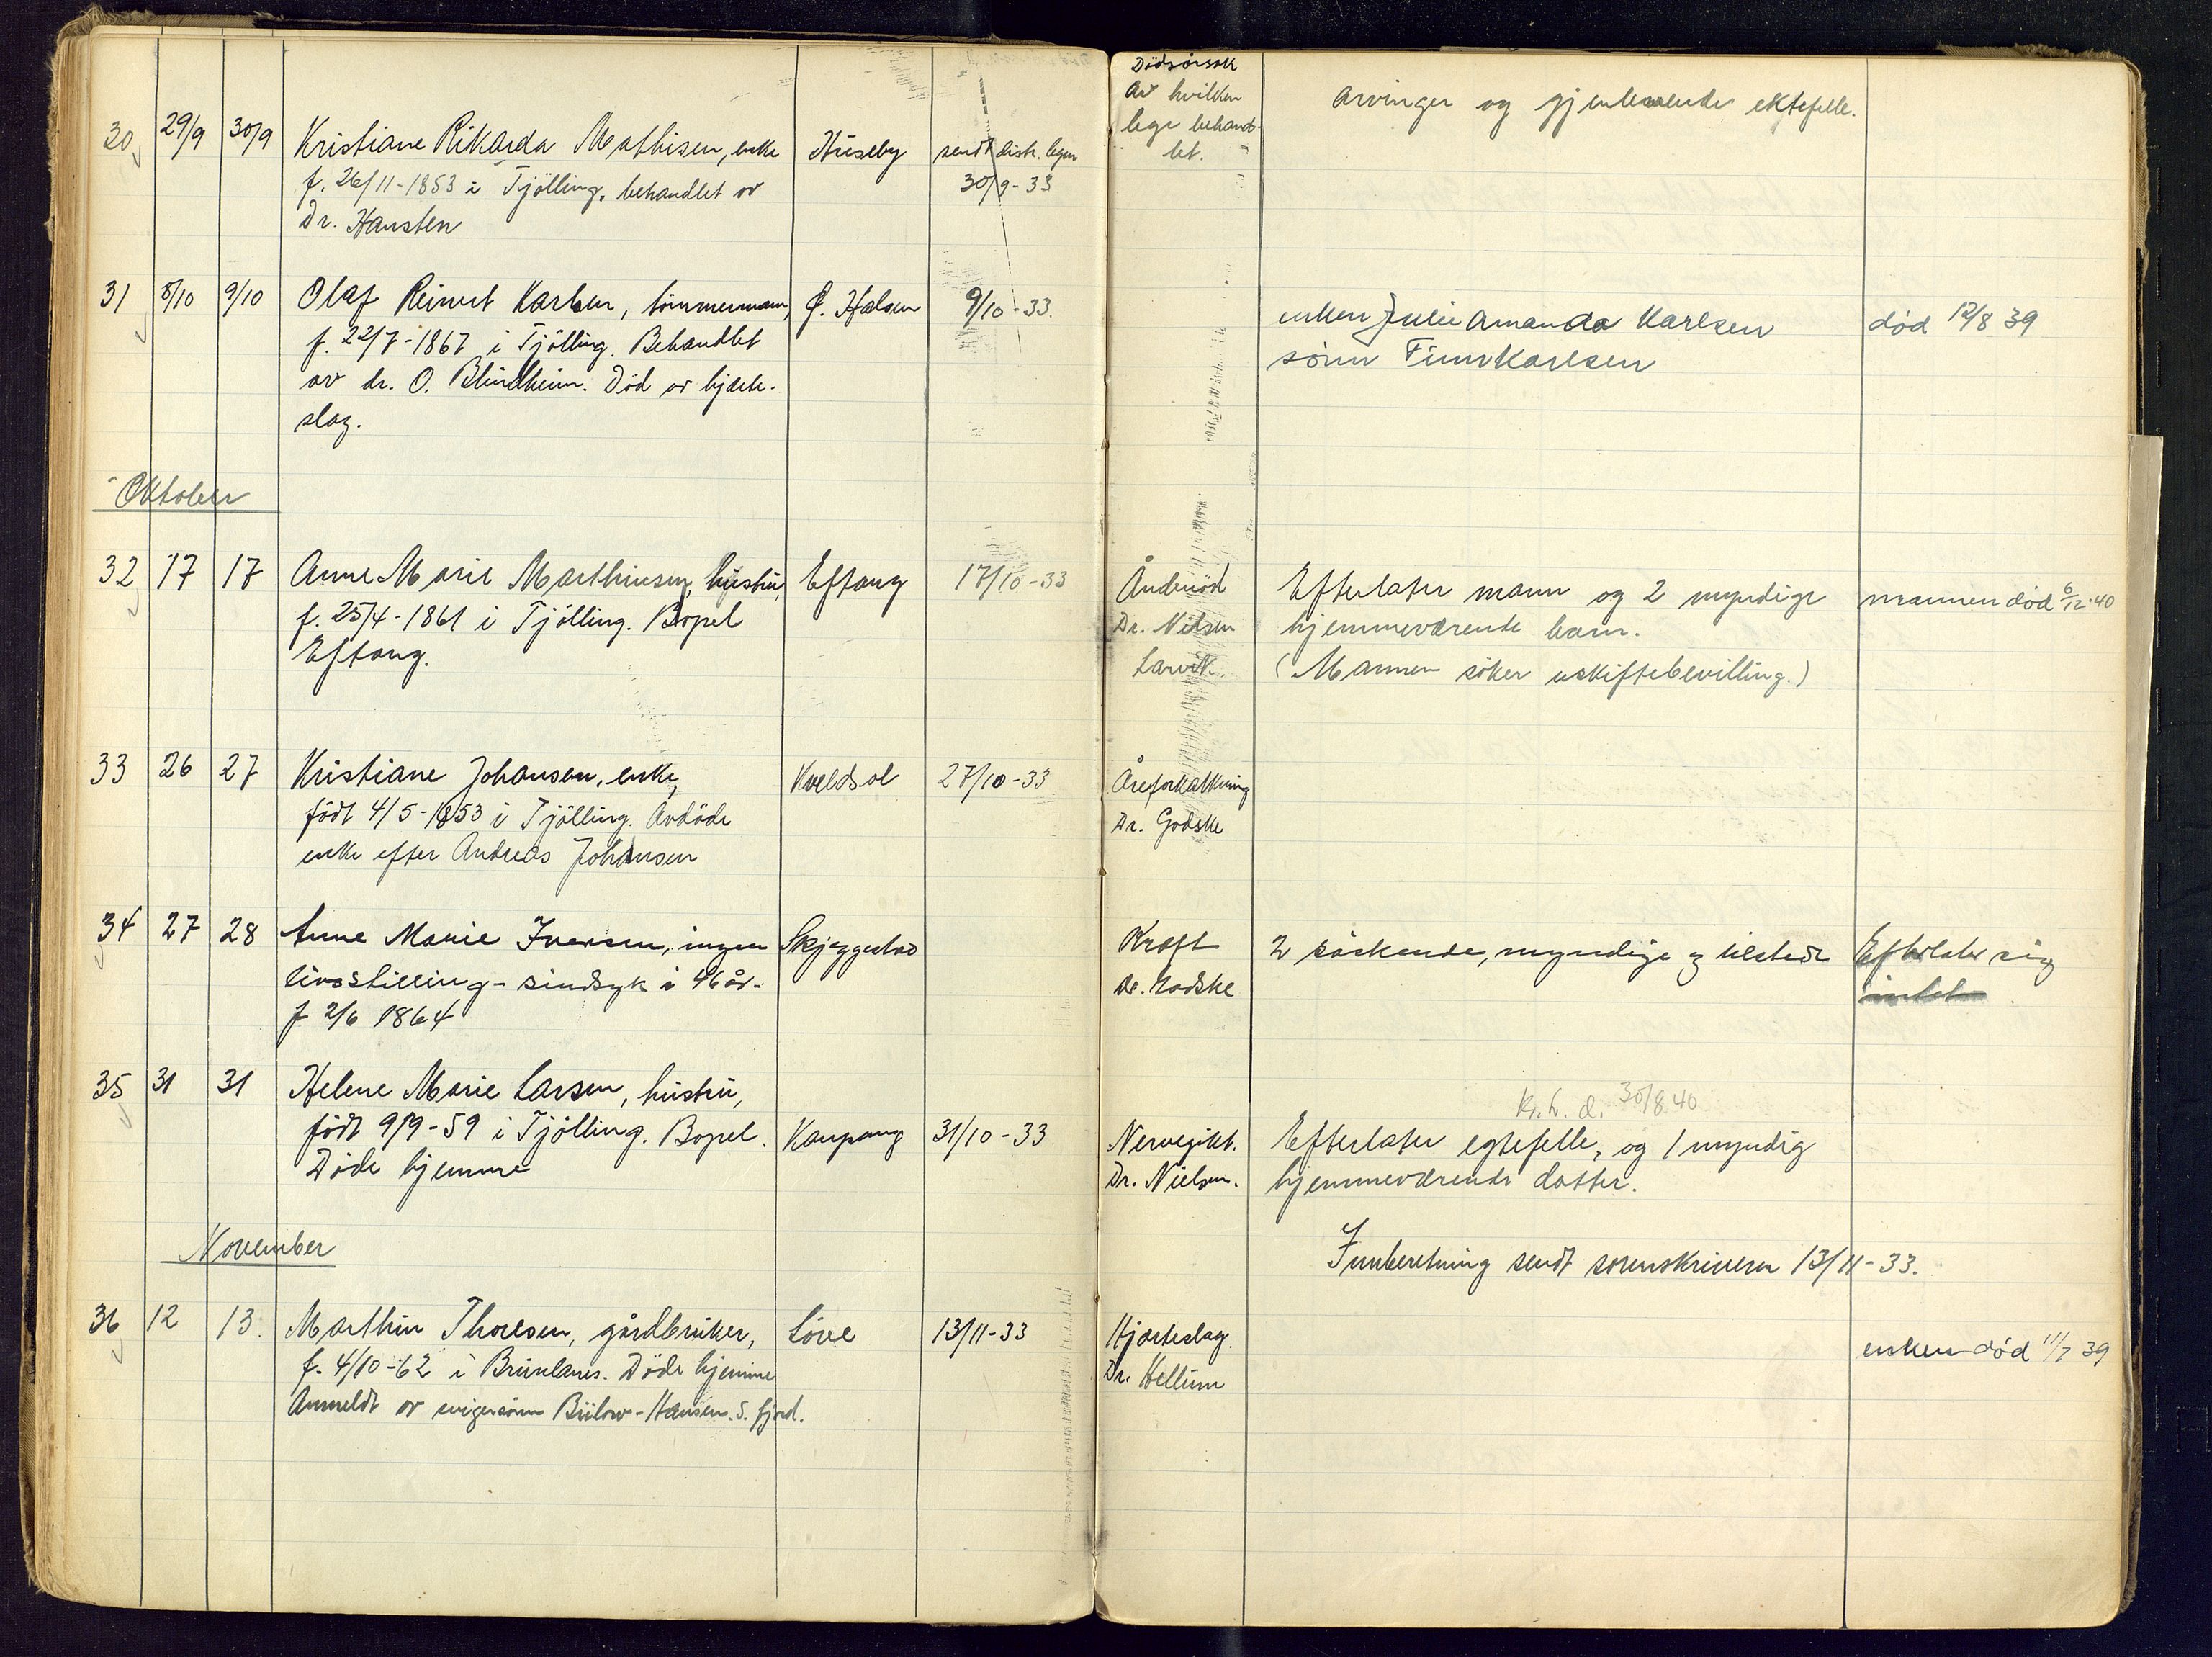 Dödsorsak
Av hvilken
lege behand-
let.
Arvinger og gjenlevende ektefelle.
30 29/9 30/9 Kristiane Rikarda Mathisen, enke Huseby sendt distr. legen
f. 26/11-1853 i Tjölling. behandlet av 30/9-33
Dr. Hansten
31 8/10 9/10 Olaf Reinert Karlsen, tömmermann, Ø. Halsen 9/10-33.
f. 22/7-1867 i Tjölling. Behandlet
av dr. O. Blindheim. Död av hjerte-
slag.
enken Julie Amanda Karlsen död 12/8 39
sönn Finn Karlsen
Oktober
32 17 17 Anne Marie Marthinsen, hustru, Eftang 17/10-33
f. 25/4-1861 i Tjölling. Bopel
Eftang.
Åndenöd Efterlater mann og 2 myndige mannen död 6/12-40
Dr. Nilsen hjemmeværende barn.
Larvik. (Mannen söker uskiftebevilling.)
33 26 27 Kristiane Johansen, enke, Kveldsol 27/10-33
födt 4/5-1853 i Tjölling. Avdöde
enke efter Andreas Johansen
Åreforkalkning
Dr. Godske
34 27 28 Anne Marie Iversen, ingen Skjeggestad
livsstilling - sindsyk i 46 år.
f 2/6 1864
Kreft 2 söskende, myndige og tilstede Efterlater sig
Dr. Godske intet
35 31 31 Helene Marie Larsen, hustru,
födt 9/9-59 i Tjölling. Bopel. Kaupang 31/10-33
Döde hjemme
30/8 40
Nervegikt. Efterlater egtefelle, og 1 myndig
Dr. Nielsen. hjemmeværende datter.
November
Innberetning sendt sorenskriveren 13/11-33.
36 12 13. Marthin Thoresen, gårdbruker, Löve 13/11-33
f. 4/10-62 i Brunlanes. Döde hjemme
Anmeldt av svigersönn Bülow-Hansen. S. fjord.
Hjerteslag.
Dr. Hellum
enken död 11/7 39